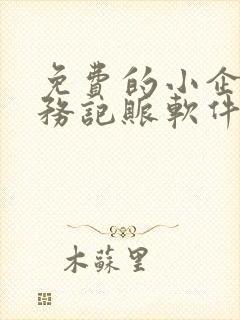 免費的小企
務記賬軟件
木蘇里